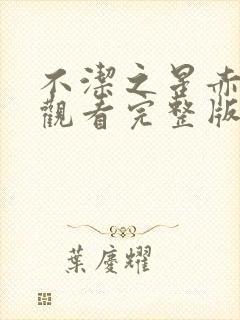 不潔之星赤
觀看完整版
葉慶耀